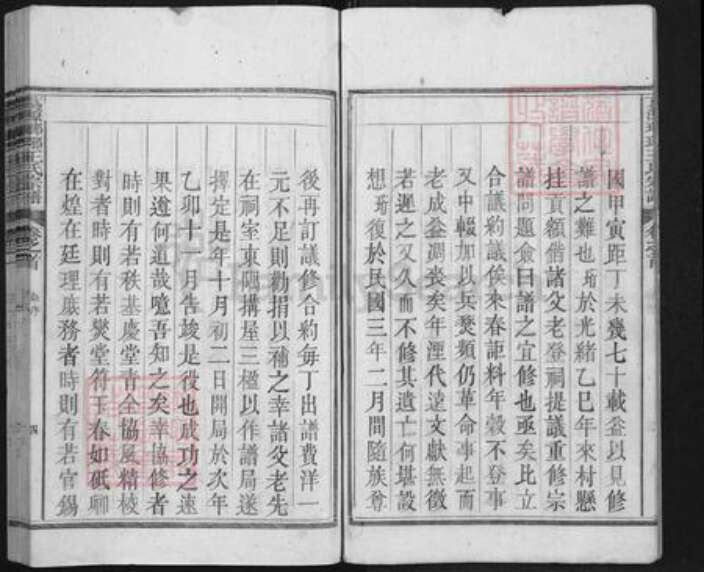 國甲寅距丁未幾七十載益以見修
譜之難也 於光緒乙巳年來村懸
挂貢額偕諸父老登祠提議重修宗
譜問題僉曰譜之宜修也亟矣比立
合議約議俟來春詎料年穀不登事
又中輟加以兵燹頻仍革命事起而
老成益凋喪矣年湮代遠文獻無徵
若遲之又久而不修其遺亡何堪設
想 復於民國三年二月間隨族尊
後再訂議修合約每丁出譜費洋一
元不足則勸捐以補之幸諸父老先
在祠室東 搆屋三楹以作譜局遂
擇定是年十月初二日開局於次年
乙卯十一月告竣是役也成功之速
果遵何道哉噫吾知之矣幸協修者
時則有若秩基慶堂青全協風精棱
對者時則有若燮堂符玉春如砥卿
在煌在廷理庶務者時則有若官錫
王氏宗譜
卷之首
四